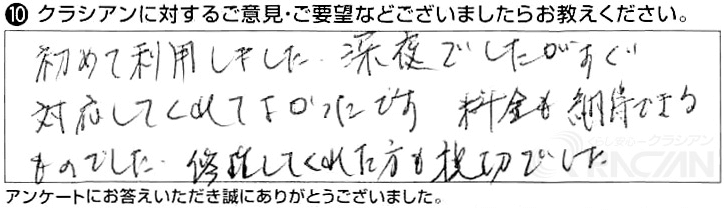 ❿ クラシアンに対するご意見・ご要望などございましたらお教えください。
初めて利用しました. 深夜でしたがすぐ
対応してくれてよかったです 料金も納得できる
ものでした. 修理してくれた方も親切でした
アンケートにお答えいただき誠にありがとうございました。